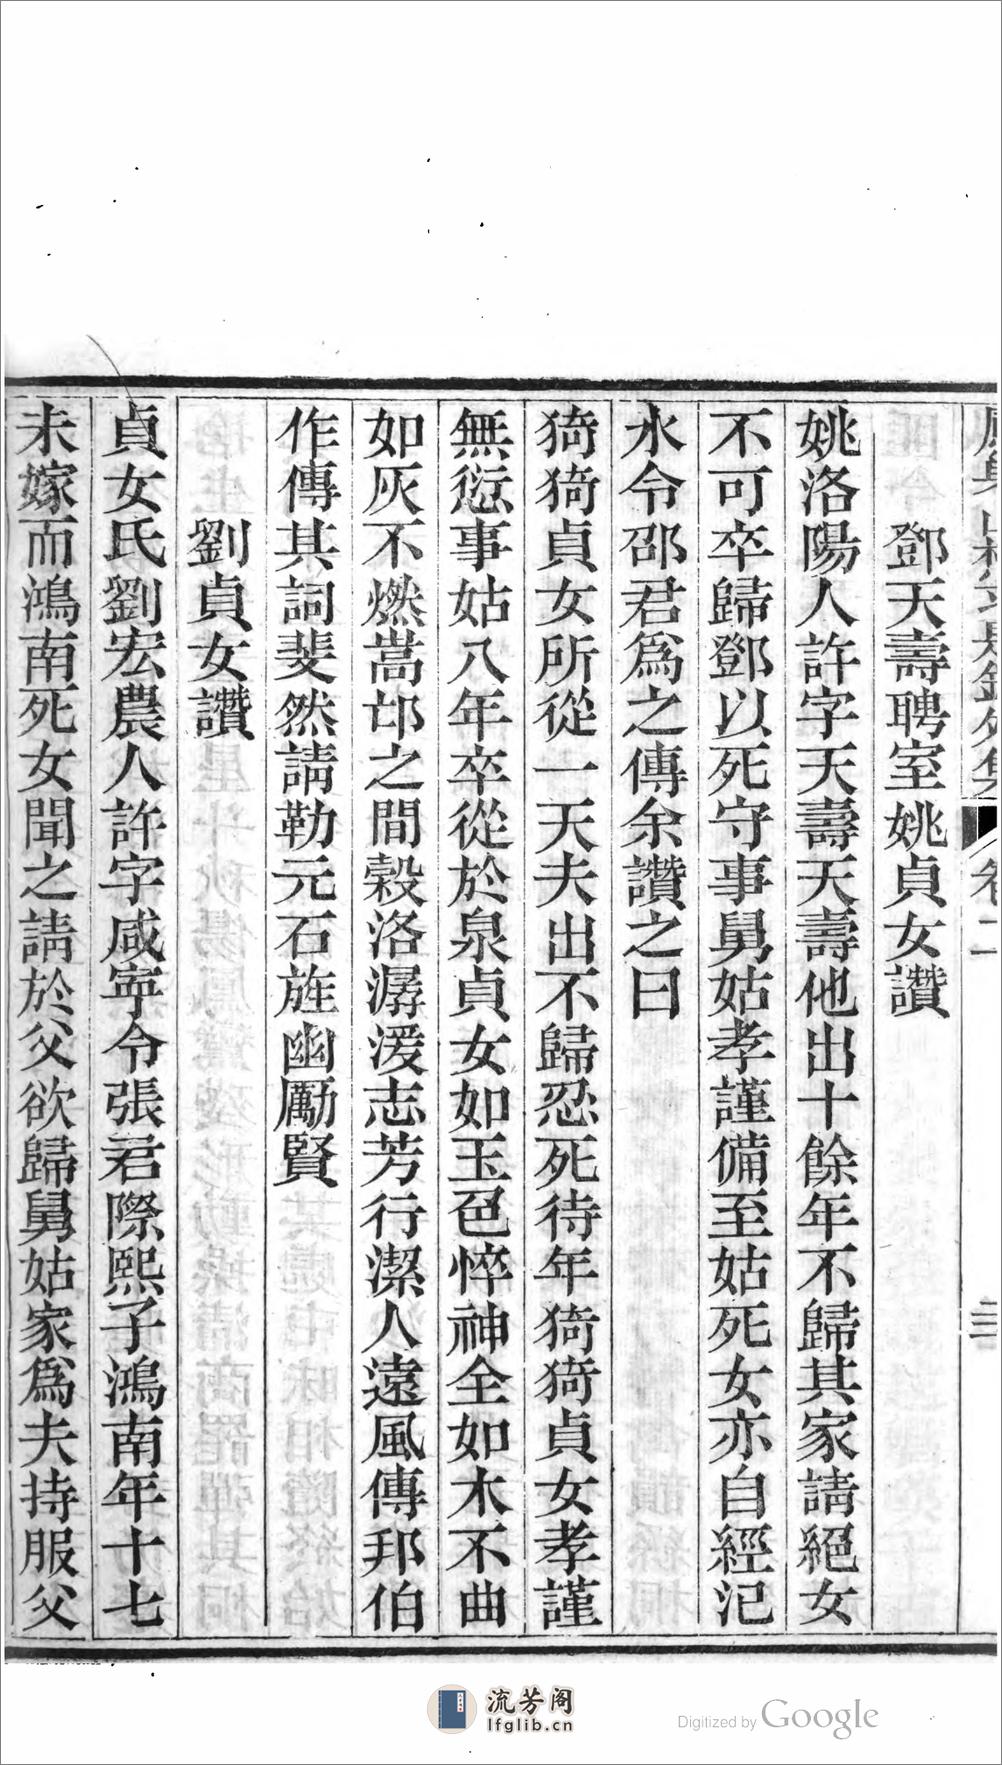 卷二
三
鄧天壽聘室姚貞女讚
姚洛陽人許字天壽天壽他出十餘年不歸其家請絕女
不可卒歸鄧以死守事舅姑孝謹備至姑死女亦自經汜
水令邵君爲之傳余讚之曰
猗猗貞女所從一天夫出不歸忍死待年猗猗貞女孝謹
無愆事姑八年卒從於泉貞女如玉色悴神全如木不曲
如灰不燃嵩邙之間榖洛潺湲志芳行潔人遠風傳邦伯
作傳其詞斐然請勒元石旌幽勵賢
劉貞女讚
貞女氏劉宏農人許字咸寧令張君際熙子鴻南年十七
未嫁而鴻南死女聞之請於父欲歸舅姑家爲夫持服父
流芳阁
lfglib.cn
Digitized by Google